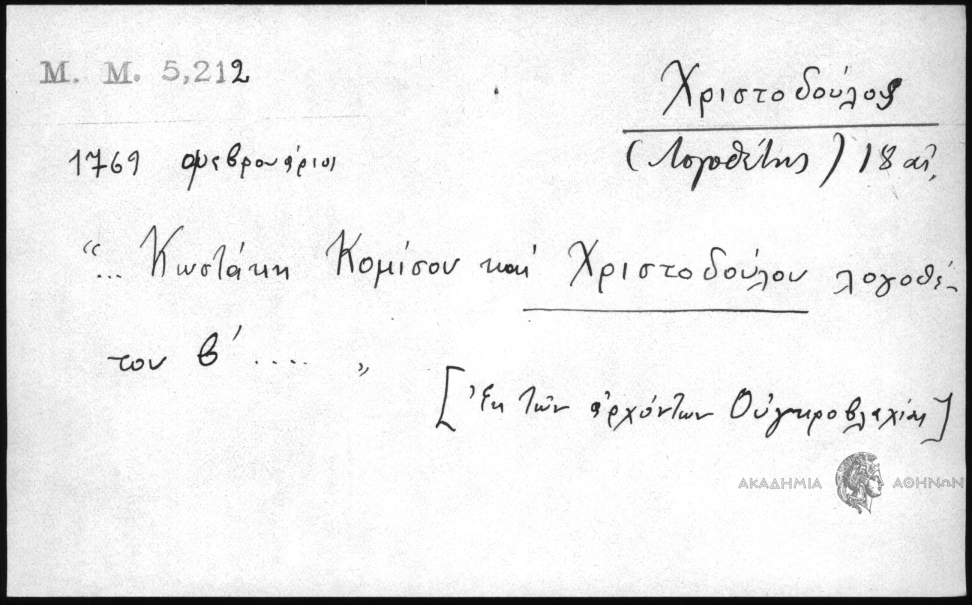 Μ. Μ. 5,212
Χριστοδούλος
(Λογοθέτης) 18 αἰ.
1769 φεβρουάριος
“... Κωστάκη Κομίσου καὶ Χριστοδούλου λογοθέ-
του β΄ .... „
[Ἐκ τῶν ἀρχόντων Οὑγκροβλαχίας]
ΑΚΑΔΗΜΙΑ ΑΘΗΝΩΝ